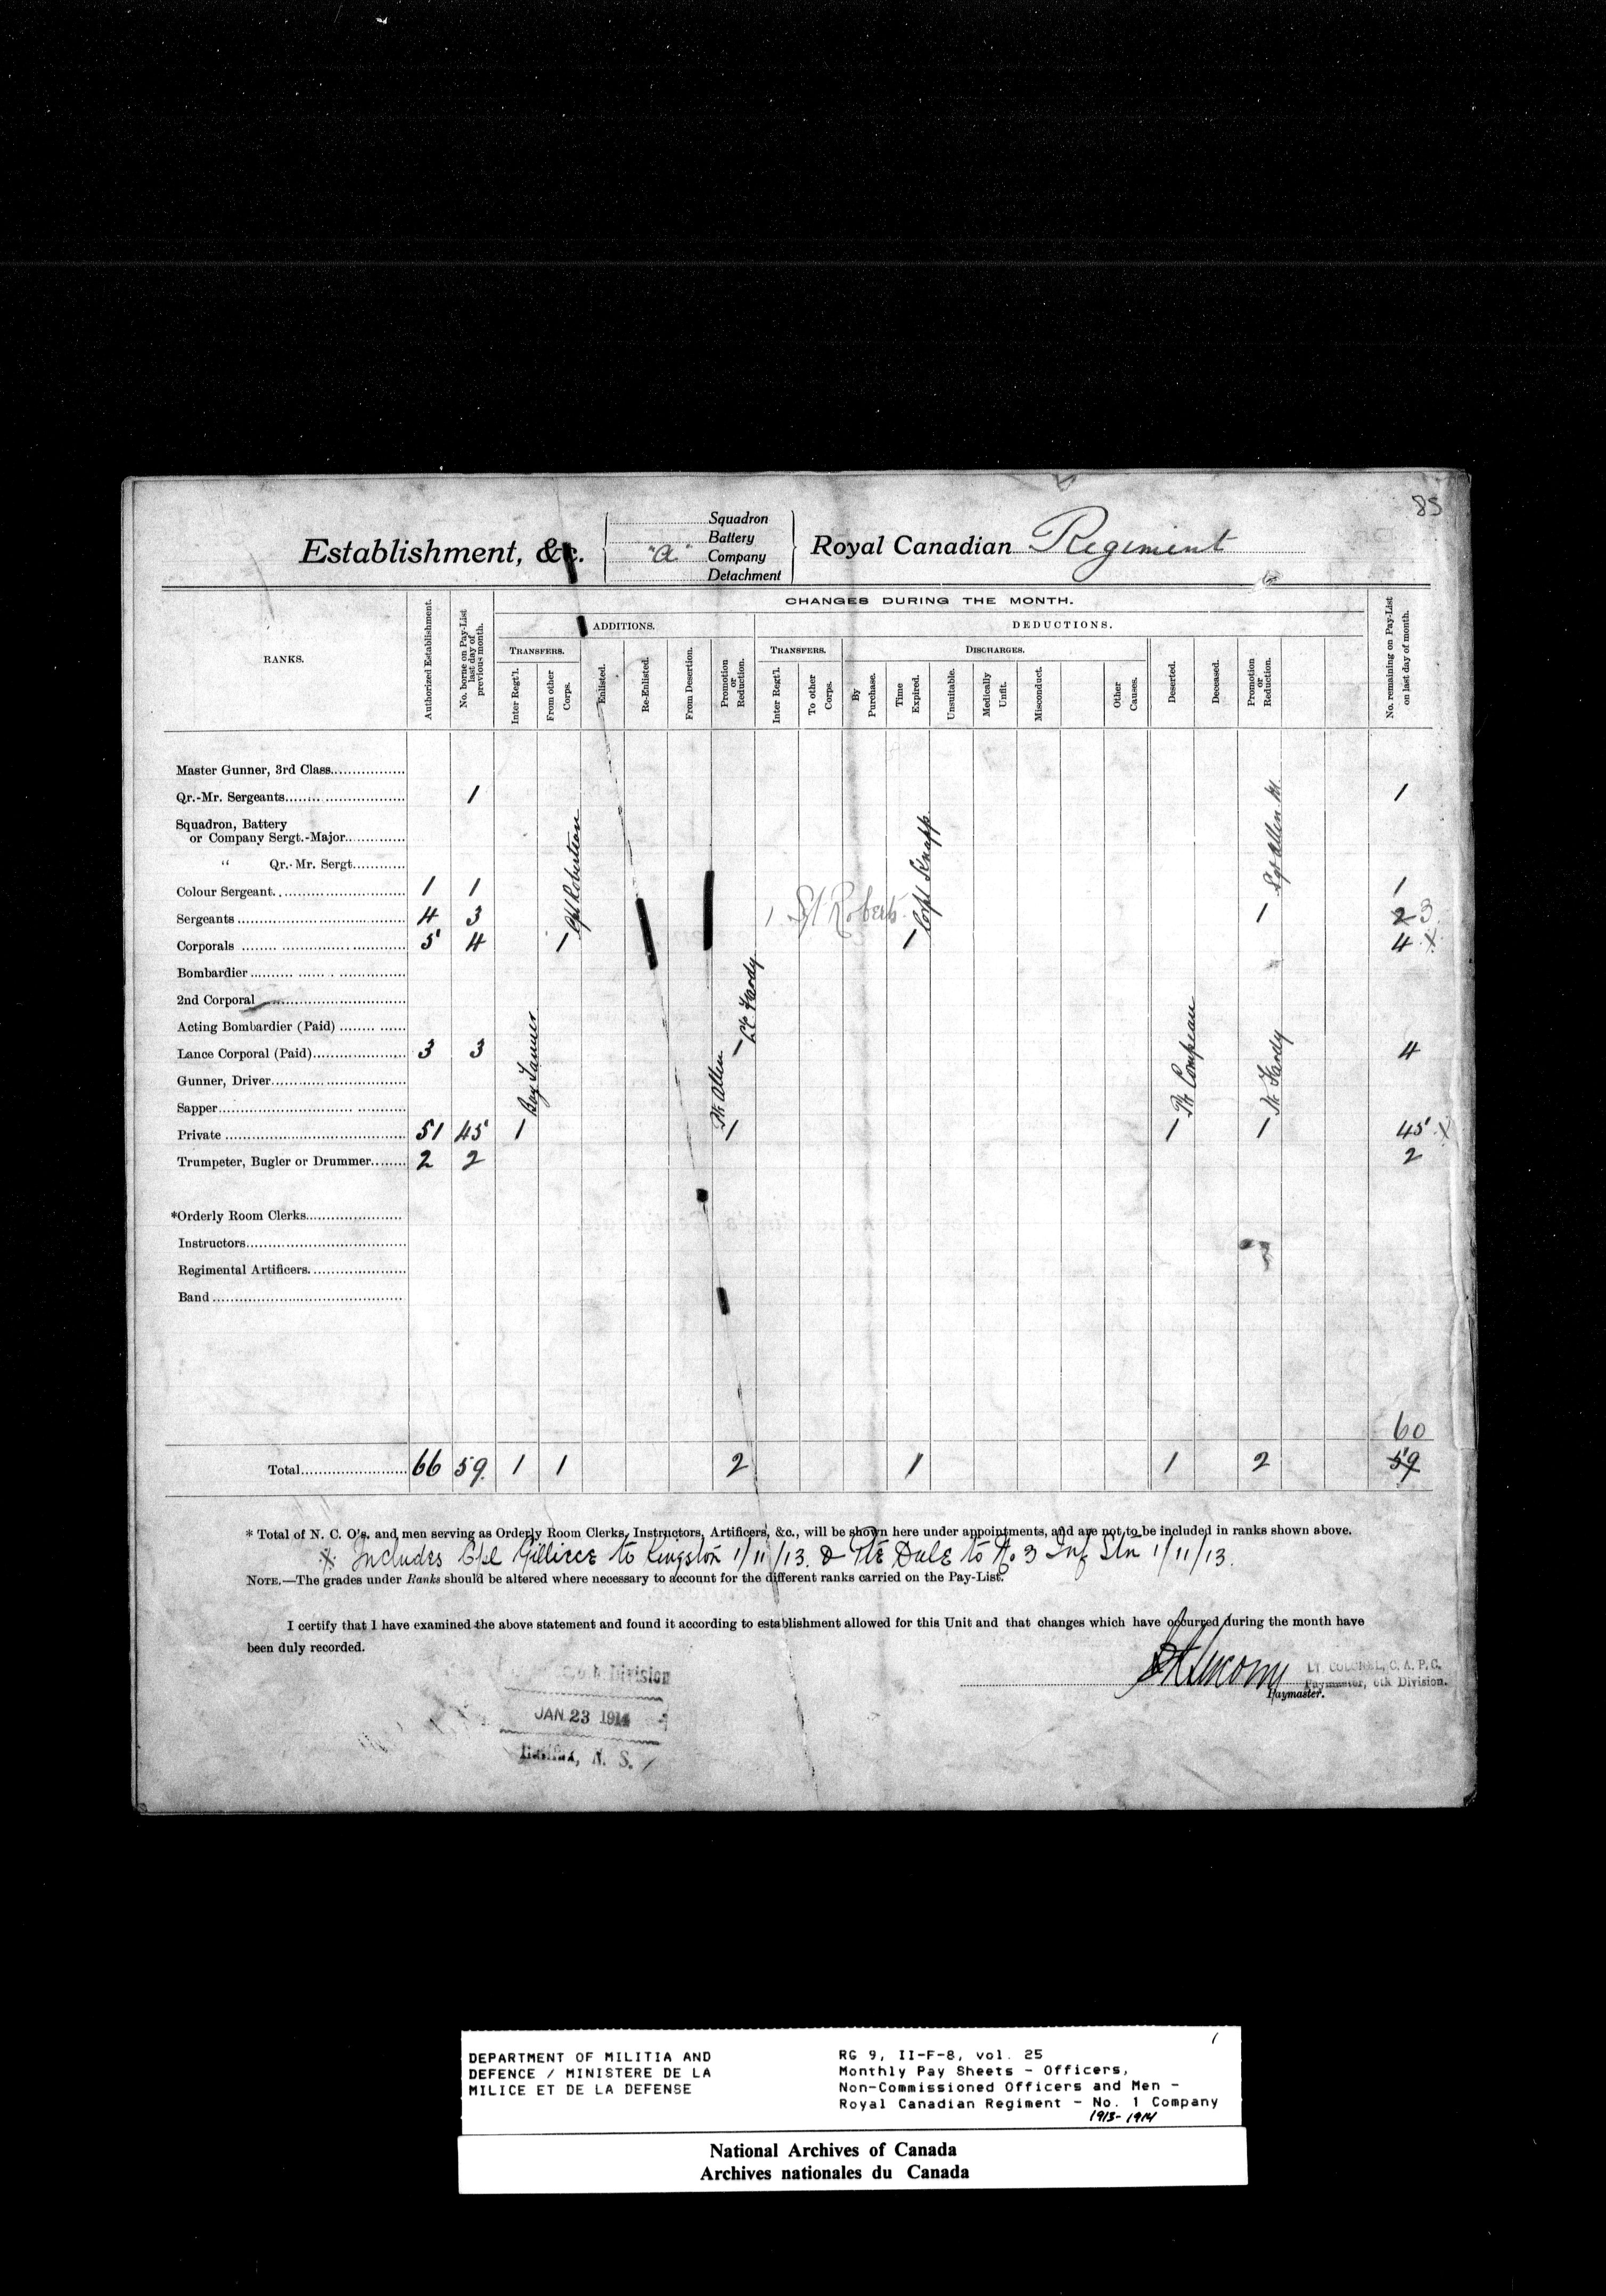 85
Squadron
Battery
Establishment, &c. "a" Company Royal Canadian Regiment
Detachment
CHANGES DURING THE MONTH.
ADDITIONS. DEDUCTIONS.
RANKS. Authorized Establishment. No. borne on Pay-List last day of previous month. TRANSFERS. TRANSFERS. DISCHARGES. No. remaining on Pay-List on last day of month.
Inter Regt'l. From other Corps. Enlisted. Re-Enlisted. From Desertion. Promotion or Reduction. Inter Regt'l. To other Corps. By Purchase. Time Expired. Unsuitable. Medically Unfit. Misconduct. Other Causes. Deserted. Deceased. Promotion or Reduction.
Master Gunner, 3rd Class
Qr.-Mr. Sergeants 1 1
Squadron, Battery
or Company Sergt.-Major
" Qr.-Mr. Sergt
Colour Sergeant 1 1 1
Sergeants 4 3 1 Sgt Roberts 1 Sgt Allen M. 2 3
Corporals 5 4 1 Cpl Robertson 1 Corpl Knapp 4 x
Bombardier
2nd Corporal
Acting Bombardier (Paid)
Lance Corporal (Paid) 3 3 1 Hardy 4
Gunner, Driver
Sapper
Private 51 45 1 Boy Tanner 1 Pte Allen 1 Pte Compeau 1 Pte Hardy 45 x
Trumpeter, Bugler or Drummer 2 2 2
*Orderly Room Clerks
Instructors
Regimental Artificers
Band
60
Total 66 59 1 1 2 1 1 2 59
* Total of N. C. O's. and men serving as Orderly Room Clerks, Instructors, Artificers, &c., will be shown here under appointments, and are not to be included in ranks shown above.
x Includes Cpl Gilliece to Kingston 1/11/13. & Pte Dale to No 3 Inf Stn 1/11/13.
NOTE.—The grades under Ranks should be altered where necessary to account for the different ranks carried on the Pay-List.
I certify that I have examined the above statement and found it according to establishment allowed for this Unit and that changes which have occurred during the month have
been duly recorded.
LT. COLONEL, C. A. P. C.
Paymaster, 6th Division.
Paymaster.
Division
JAN 23 1914
Halifax, N. S.
1
DEPARTMENT OF MILITIA AND
DEFENCE / MINISTERE DE LA
MILICE ET DE LA DEFENSE
RG 9, II-F-8, vol. 25
Monthly Pay Sheets - Officers,
Non-Commissioned Officers and Men -
Royal Canadian Regiment - No. 1 Company
1913-1914
National Archives of Canada
Archives nationales du Canada